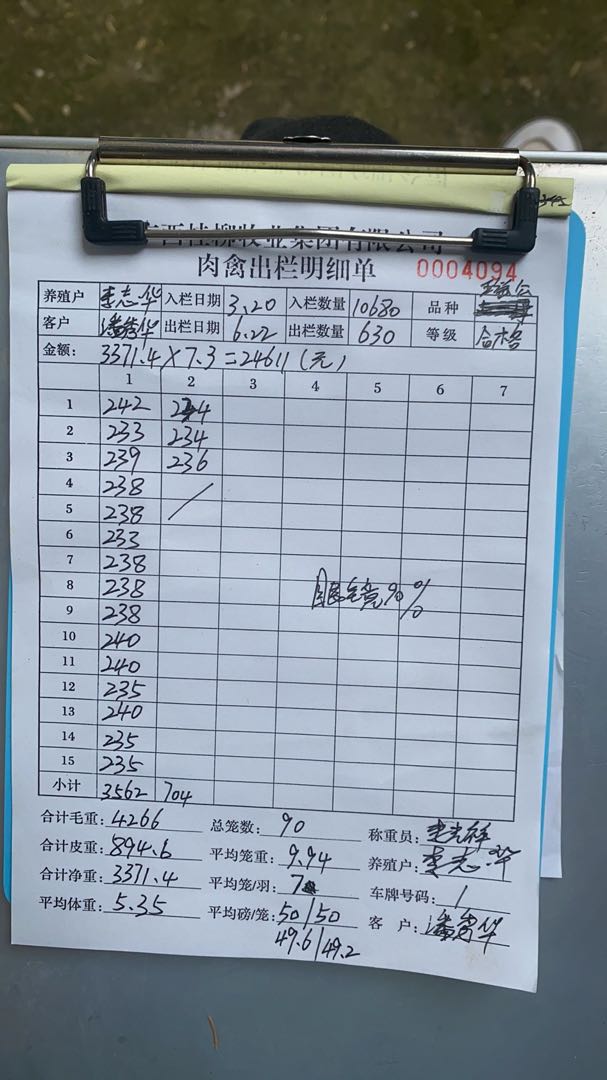 广西桂柳牧业集团有限公司
肉禽出栏明细单 0004094
养殖户 李志华 入栏日期 3.20 入栏数量 10680 品种
客户 潘秀华 出栏日期 6.22 出栏数量 630 等级 合格
金额: 3371.4×7.3=24611(元)
1 2 3 4 5 6 7
1 242 234
2 233 234
3 239 236
4 238
5 238
6 233
7 238
8 238 眼镜90%
9 238
10 240
11 240
12 235
13 240
14 235
15 235
小计 3562 704
合计毛重: 4266 总笼数: 90 称重员:
合计皮重: 894.6 平均笼重: 9.94 养殖户: 李志华
合计净重: 3371.4 平均笼/羽: 7 车牌号码: 1
平均体重: 5.35 平均磅/笼: 50/50 客 户: 潘秀华
49.6/49.2